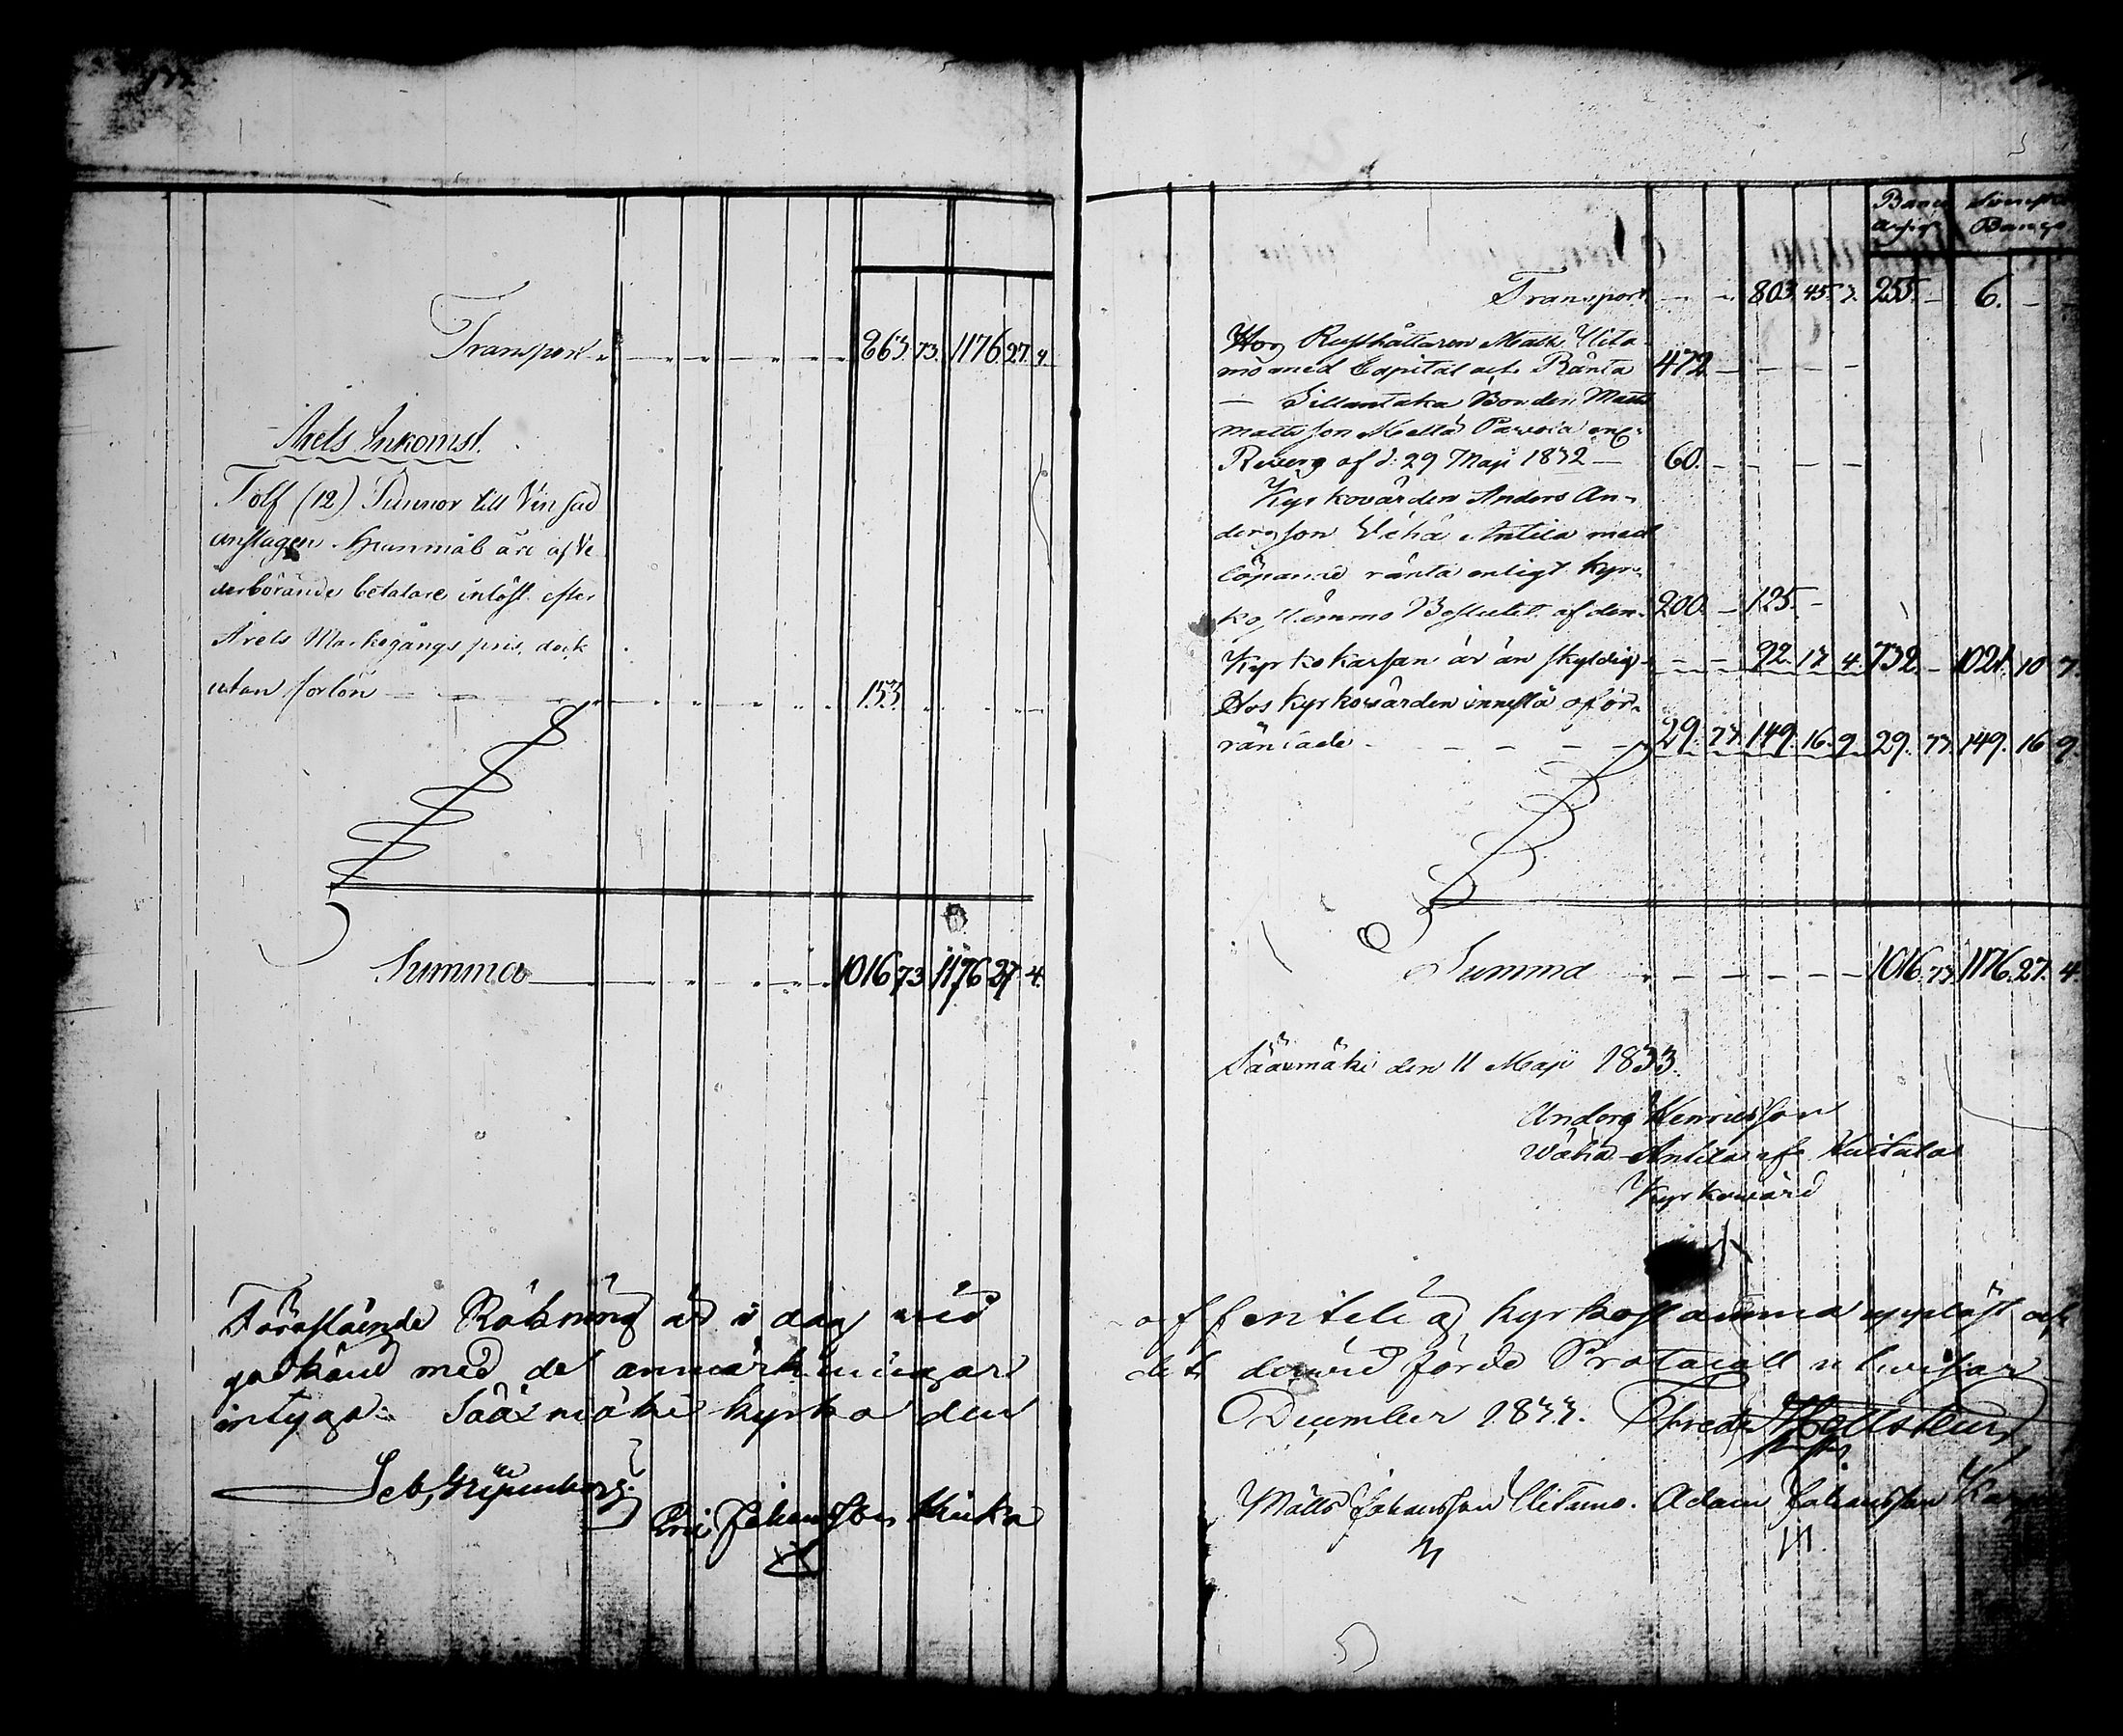 Transport 863 73. 1176. 27. 4.
Årets Inkomst.
Tolf (12) Tunnor till Vin säd
anslagen Spanmål äre af Ve
derbörande betalare inlöst efter
Årets Markegångs pris, dock
utan forlön 153
Summa 1016 73 1176 27 4.
Föreståénde Räkning är i dag vid
godkänd med de anmärkningar
intygar. Sääxmäki kyrka den
Eric Johansson Kuka
Banco Assig:
Banco
Transport 803. 45. 255. 6.
Hos Rusthållaren Matts Uita-
mo med Capital och Ränta 472
Sillantaka Bonden Matts
Mattsson Mella Pavola enl:
Revers af d: 29 Maji 1832 60.
Kyrkovärden Anders An-
dersson Väha Antila med
löpande ränta enligt Kyr-
kostämmo Beslutet af den 200. 125.
Kyrkokassan är än skyldig 92. 17 4. 732. 1021. 10 7.
Hos kyrkovärden innestå oför-
räntade 29. 73. 149. 16. 9. 29. 73. 149. 16 9.
Summa 1016. 73. 1176. 27. 4.
Sääxmäki den 11 Maji 1833.
Anders Henricsson
Wähä-Antila af Huitula
Kyrkovärd
offentelig Kyrkostämma uppläst och
det dervid förde Protocoll utvisar
December 1833. Fredr Hellsteen
Matts Johansson Uitamo. Adam Johansson